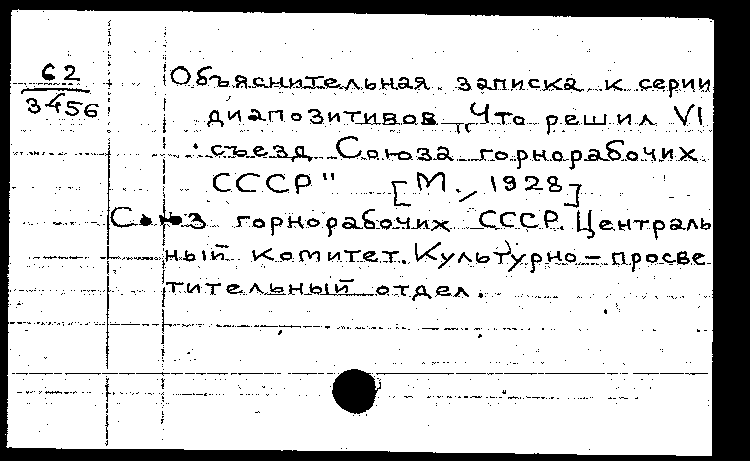 62
3456
Объяснительная записка к серии
диапозитивов „Что решил VI
съезд Союза горнорабочих
СССР" [М., 1928]
Союз горнорабочих СССР. Централь
ный комитет. Культурно-просве
тительный отдел.